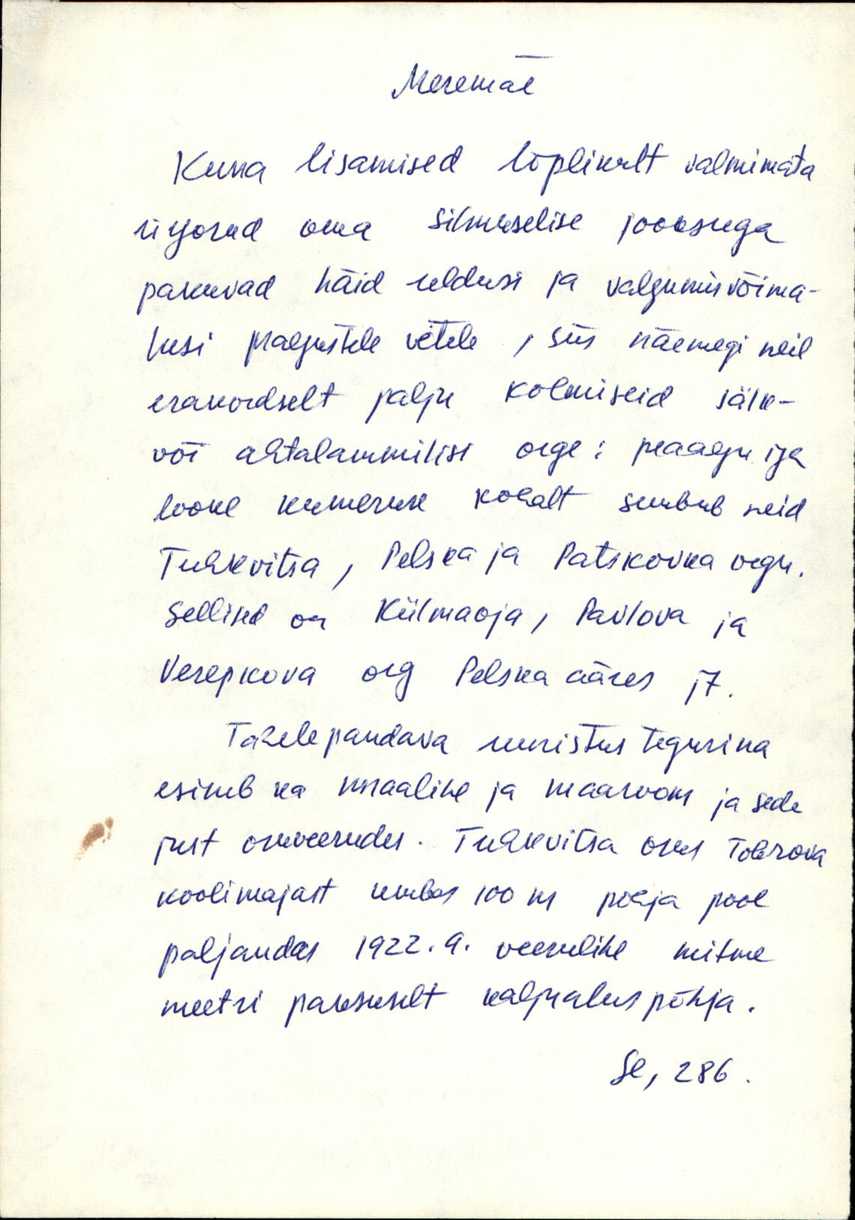 Meremäe
Kuna lisamised lõplikult valmimata
ürgorud oma silmuselise jooksuga
pakuvad häid eeldusi ja valgumisvõima-
lusi praegustele vetele, siis näemegi neil
erakordselt palju kolmiseid sälk-
või ahtalammilisi orge: peaaegu iga
looke kumeruse kohalt suubub neid
Tuhkvitsa, Pelska ja Patskovka orgu.
Sellised on Külmaoja, Pavlova ja
Verepkova org Pelska ääres jt.
Tähelepandava uuristus tegurina
esineb ka ja maavoom ja seda
just oruveerudes. Tuhkvitsa orus Tobrova
koolimajast umbes 100 m põhja pool
paljandas 1922. a. veerulihe mitme
meetri paksuselt kaljualuspõhja.
Se, 286.